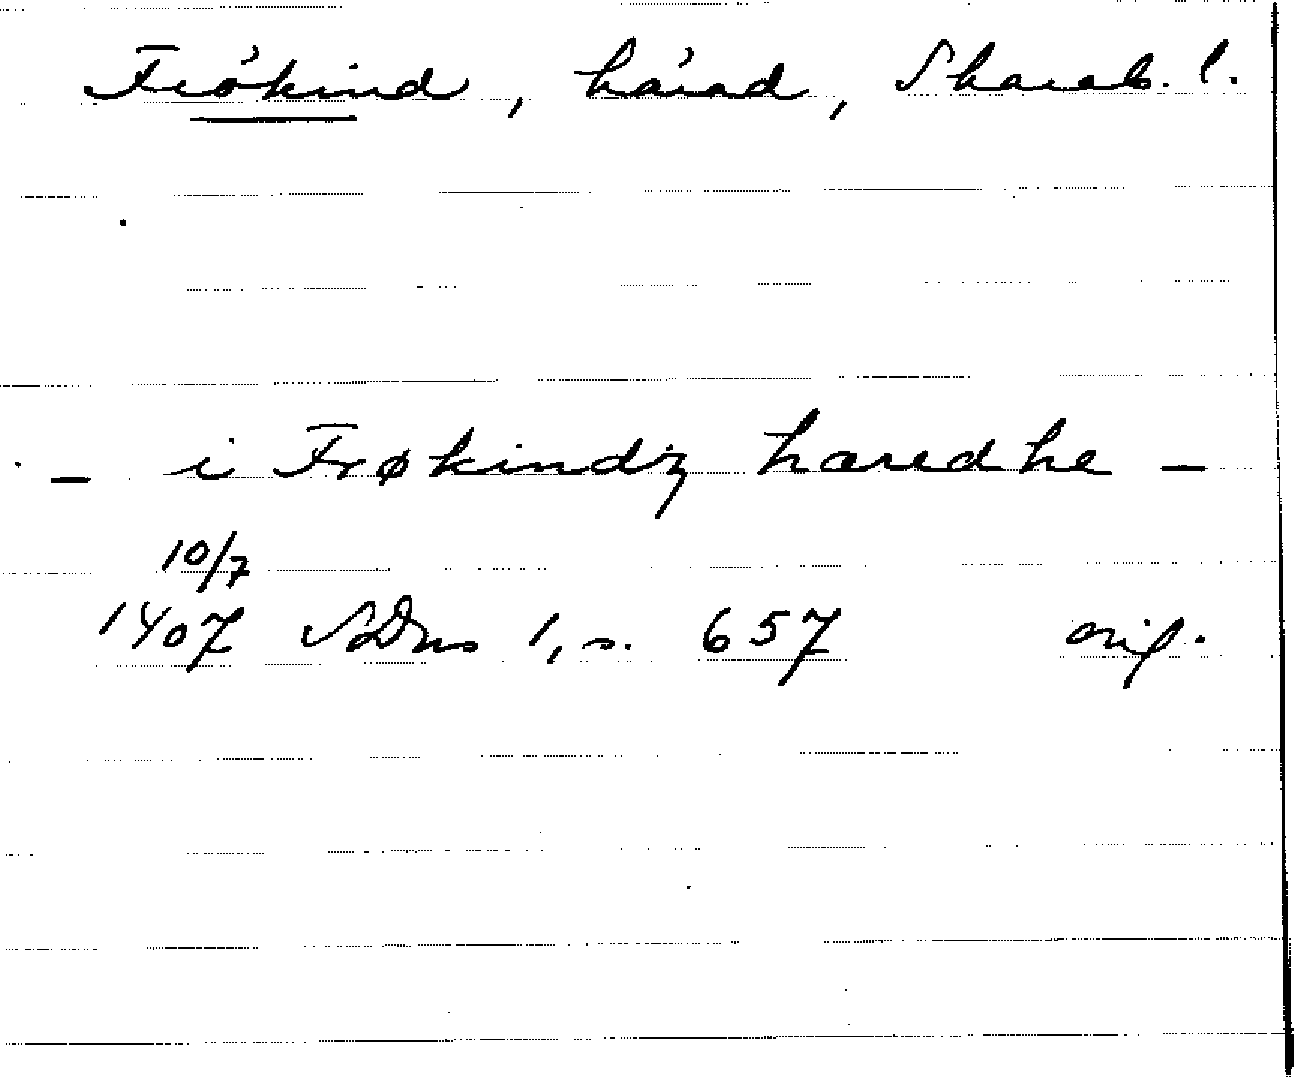 Frökind, härad, Skarab. l.
– i Frøkindz haredhe –
10/7
1407 SDns 1, s. 657 orig.